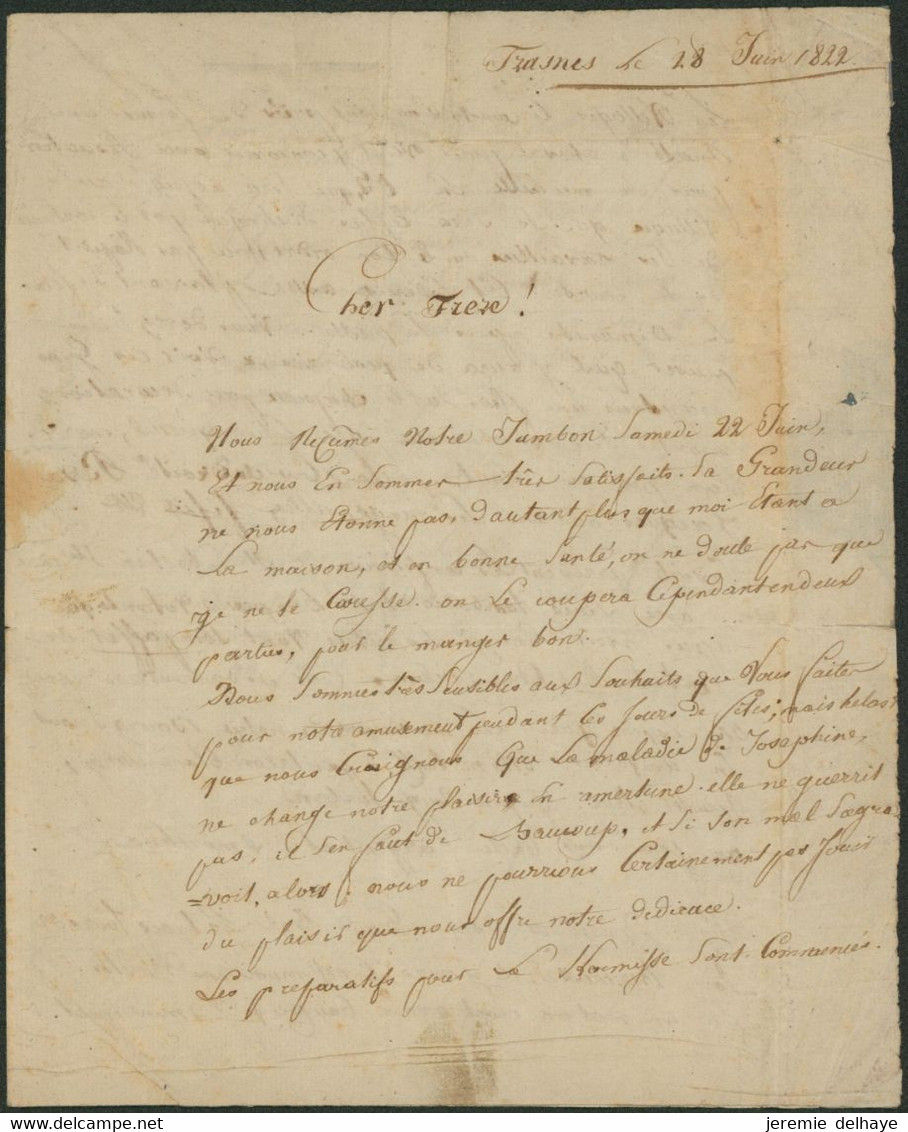 Frasnes Le 28 Juin 1822.
Cher Frere!
Nous Reçûmes Notre Jambon Samedi 22 Juin,
Et nous En Sommes très Satisfaits. Sa Grandeur
ne nous Etonne pas, dautantplus que moi Etant a
La maison, et en bonne Santé, on ne doute pas que
je ne le Caresse. on Le coupera Cependant endeux
parties, pour le manger bon.
Nous Sommes très Sensibles aux Souhaits que Vous faites
pour notre amusement pendant Ces Jours de fêtes; mais helas!
que nous Craignons Que La maladie de Josephine,
ne change notre plaisir, En amertune. elle ne guerrit
pas, il S'en faut de Baucoup, et Si Son mal S'agra
=voit, alors, nous ne pourrions Certainement pas Jouir
du plaisir que nous offre notre dedicace.
Les preparatifs pour La Kermisse Sont Commencés.
delcampe.net
jeremie delhaye